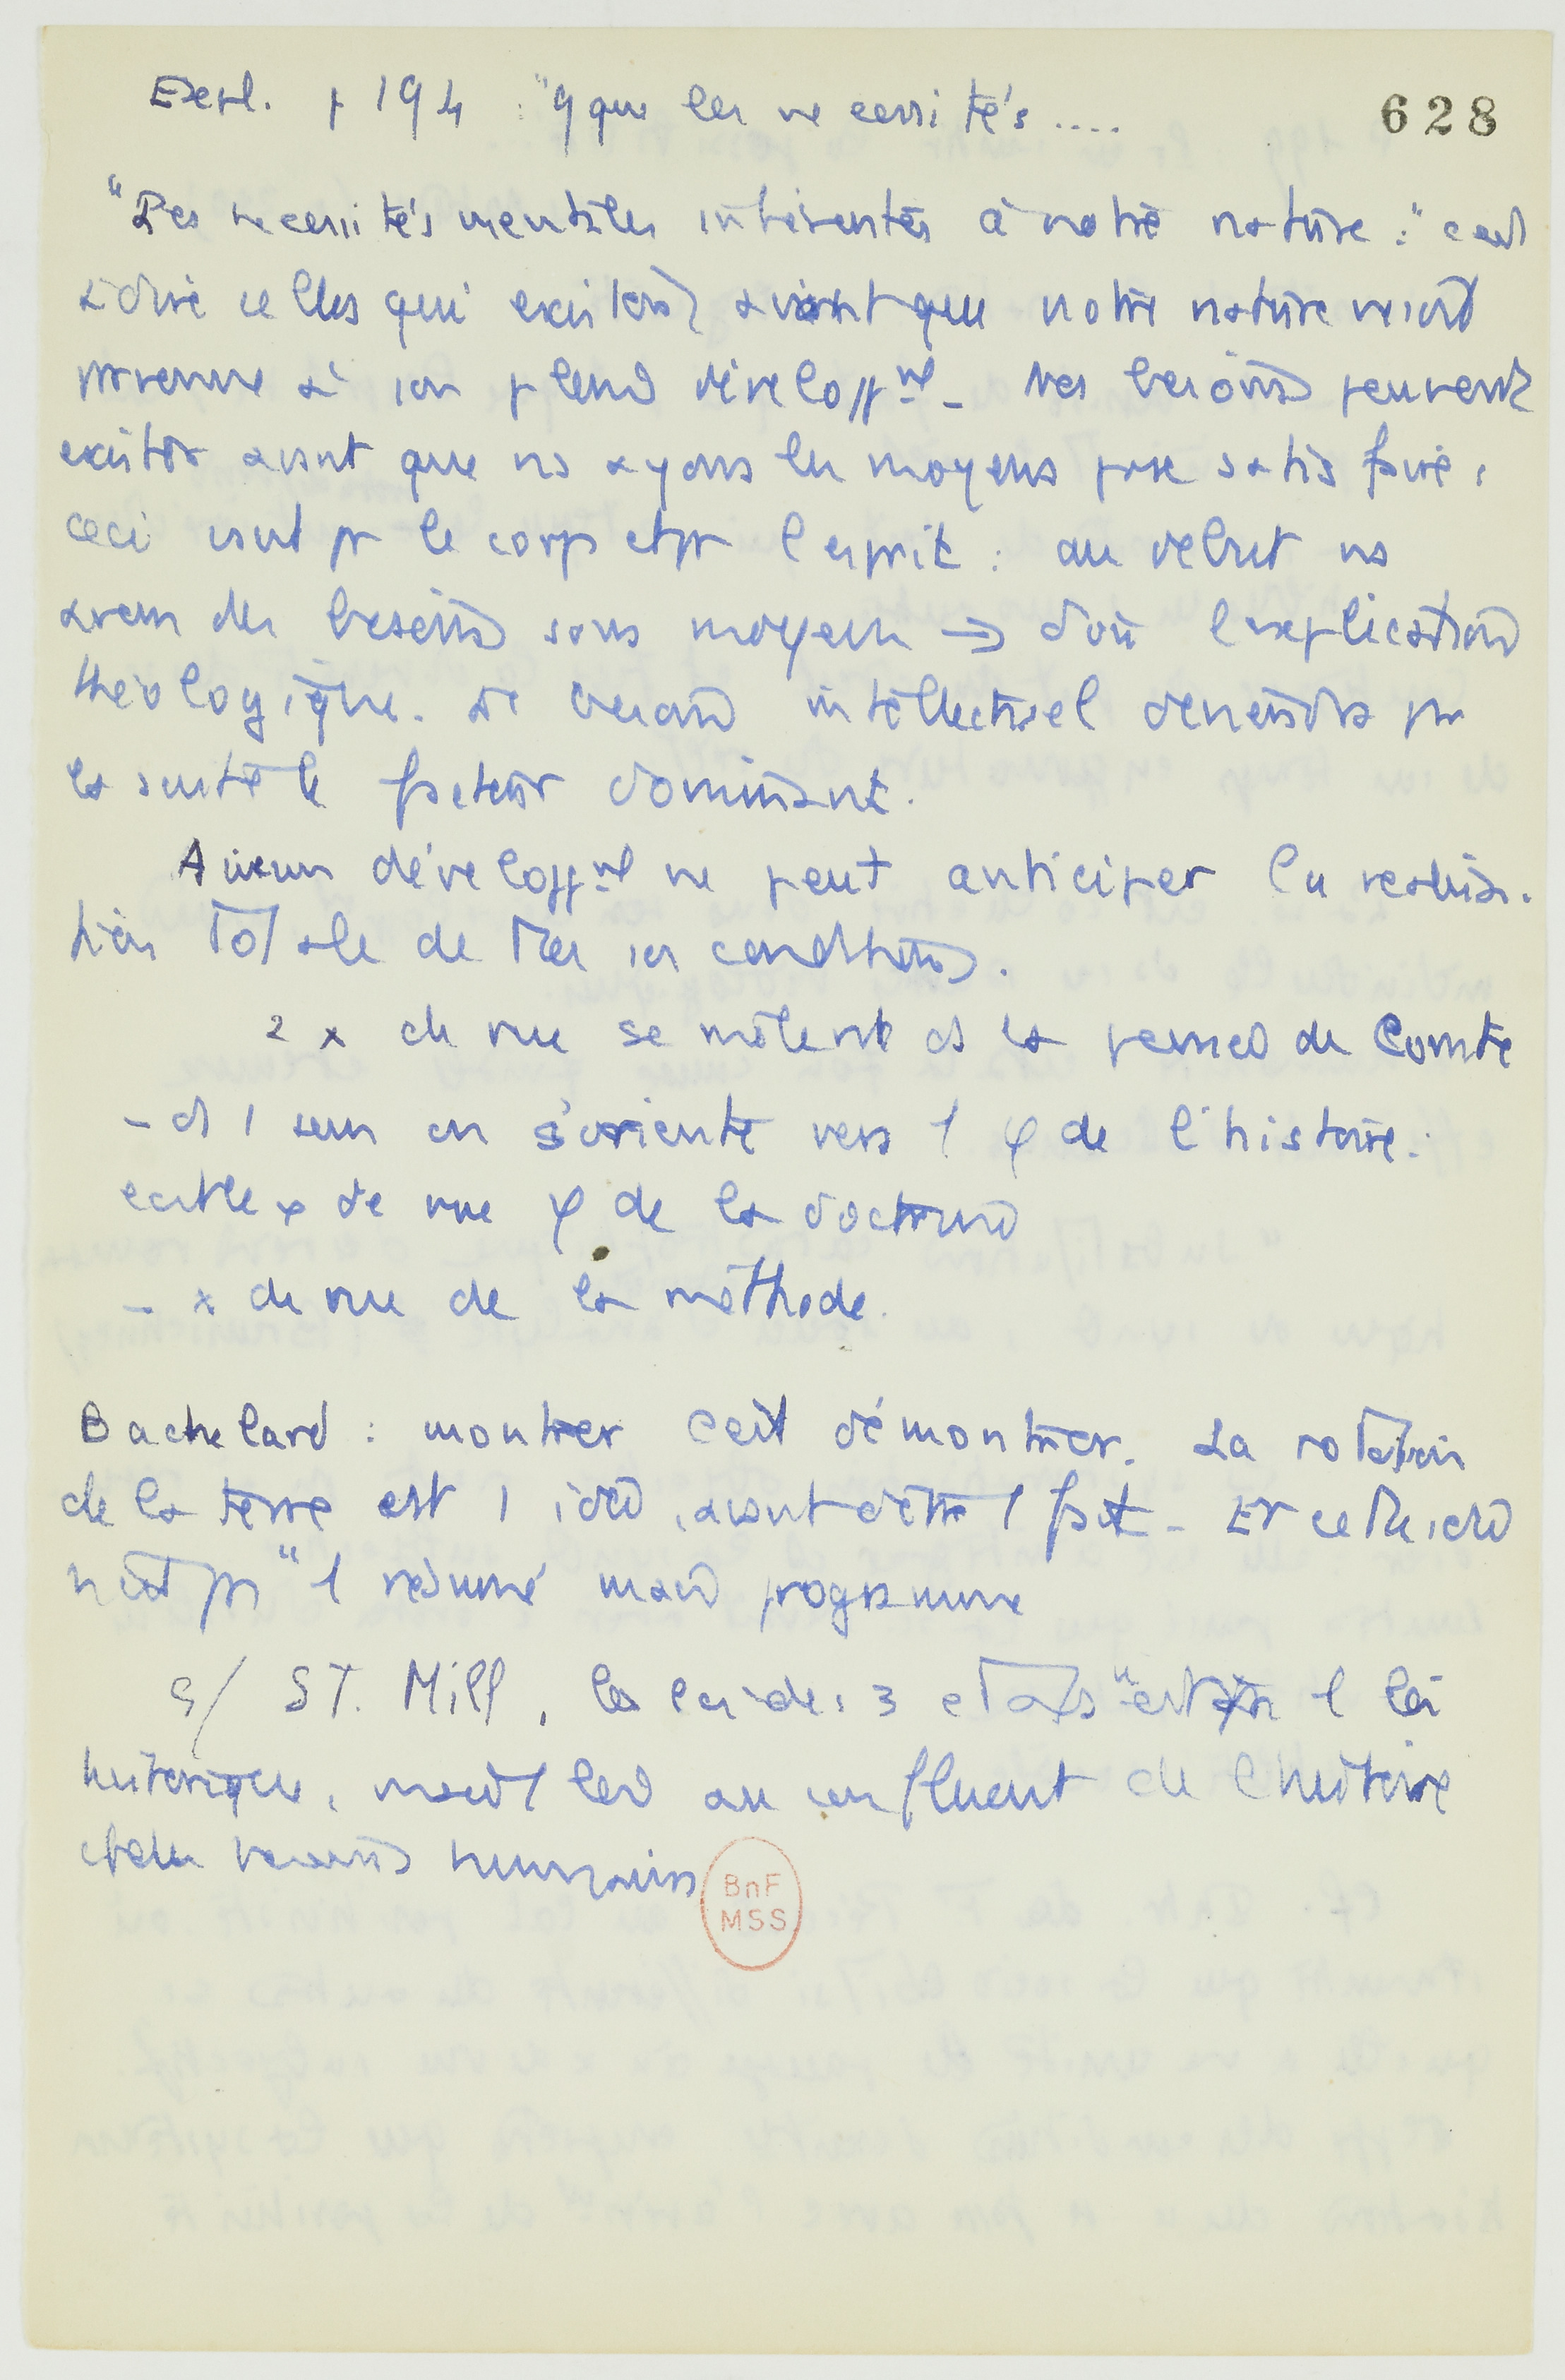 Expl. p 194 : "q que les necessités ....
628
"Des necessités mentales inhérentes à notre nature :" c'est
à dire celles qui existent avant que notre nature
parvenue à son plein développ^nt - des besoins peuvent
exister avant que ns ayons les moyens satisfaire,
ceci vaut pr le corps et pr l'esprit : au debut ns
avons des besoins sans moyens → d'où l'explication
théologique. Le besoin intellectuel deviendra par
la suite le facteur dominant.
Aucun développ^nt ne peut anticiper la réalisa-
tion totale de ttes ses conditions.
2 x de vue se mêlent ds la pensée de Comte
- ds 1 sens on s'oriente vers 1 φ de l'histoire :
c'est le x de vue φ de la doctrine
- x de vue de la méthode.
Bachelard : montrer c'est démontrer. La rotation
de la terre est 1 idée, avant d'être 1 fait - Et cette idée
n'est pas 1 résumé mais programme
c/ ST. Mill, la loi des 3 etats n'est pas 1 loi
historique, mais 1 loi au confluent de l'histoire
et des besoins humains
BnF
MSS